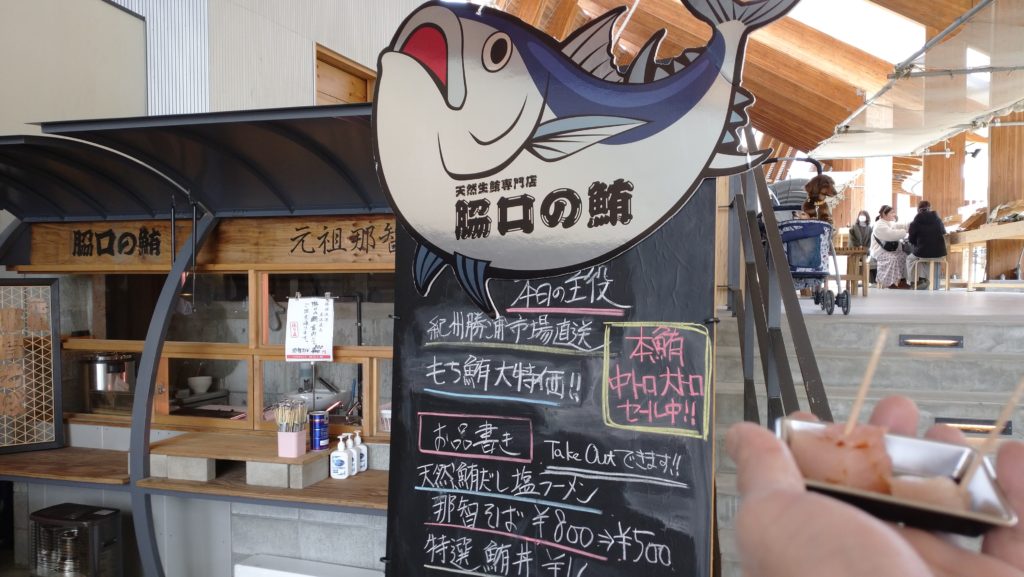 天然生鮪専門店
脇口の鮪
脇口の鮪
元祖那智
今日の主役
紀州勝浦市場直送
もち鮪大特価!!
本鮪
中トロ大トロ
セール中!!
お品書き
Take Outできます!!
天然鮪だし塩ラーメン
那智そば ¥800→¥500
特選 鮪丼